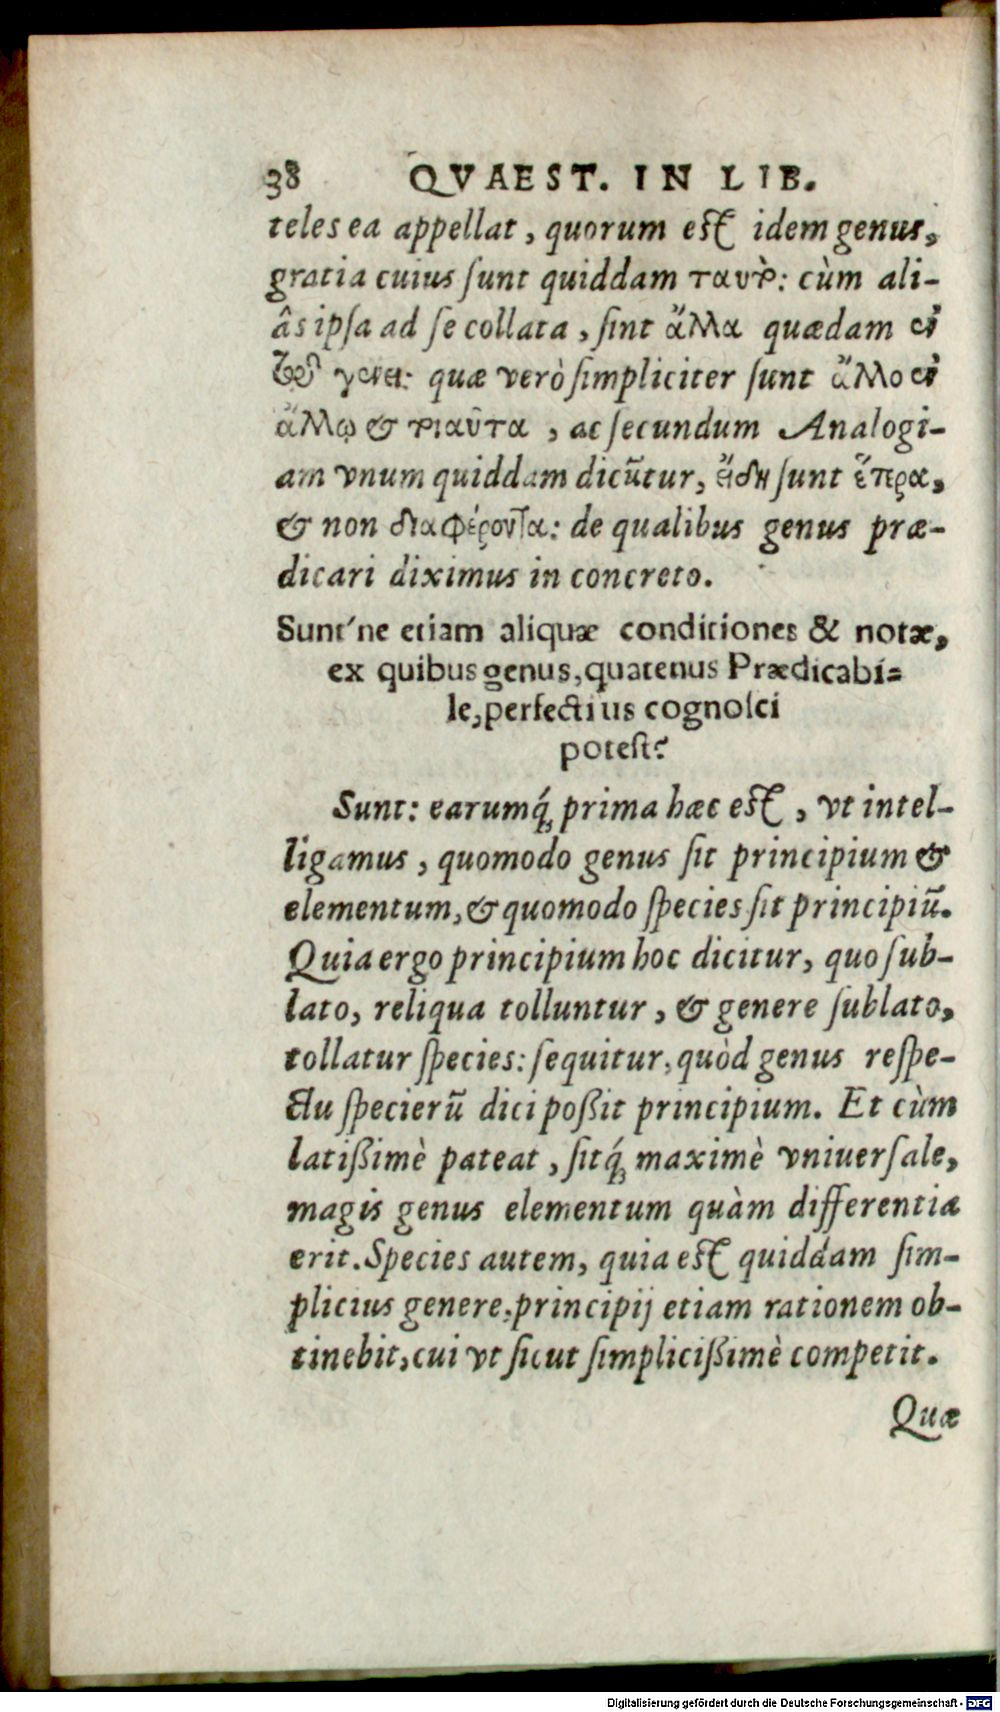 38 QVAEST. IN LIB.
teles ea appellat, quorum est idem genus,
gratia cuius ſunt quiddam ταυτὸ: cùm ali-
âs ipſa ad ſe collata, ſint ἄλλα quædam ἐν
γένει: quæ verò ſimpliciter ſunt ἄλλο ἐν
ἄλλῳ & τοιαῦτα, ac ſecundum Analogi-
am vnum quiddam dicūtur, ἤδη ſunt ἕτερα,
& non διαφέροντα: de qualibus genus præ-
dicari diximus in concreto.
Sunt'ne etiam aliquæ conditiones & notæ,
ex quibus genus, quatenus Prædicabi-
le, perfectius cognoſci
poteſt?
Sunt: earumq́; prima hæc est, vt intel-
ligamus, quomodo genus ſit principium &
elementum, & quomodo ſpecies ſit principiū.
Quia ergo principium hoc dicitur, quo ſub-
lato, reliqua tolluntur, & genere ſublato,
tollatur ſpecies: ſequitur, quòd genus reſpe-
ctu ſpecierū dici poßit principium. Et cùm
latißimè pateat, ſitq́; maximè vniuerſale,
magis genus elementum quàm differentia
erit. Species autem, quia est quiddam ſim-
plicius genere, principij etiam rationem ob-
tinebit, cui vt ſicut ſimplicißimè competit.
Quæ
Digitalisierung gefördert durch die Deutsche Forschungsgemeinschaft - DFG